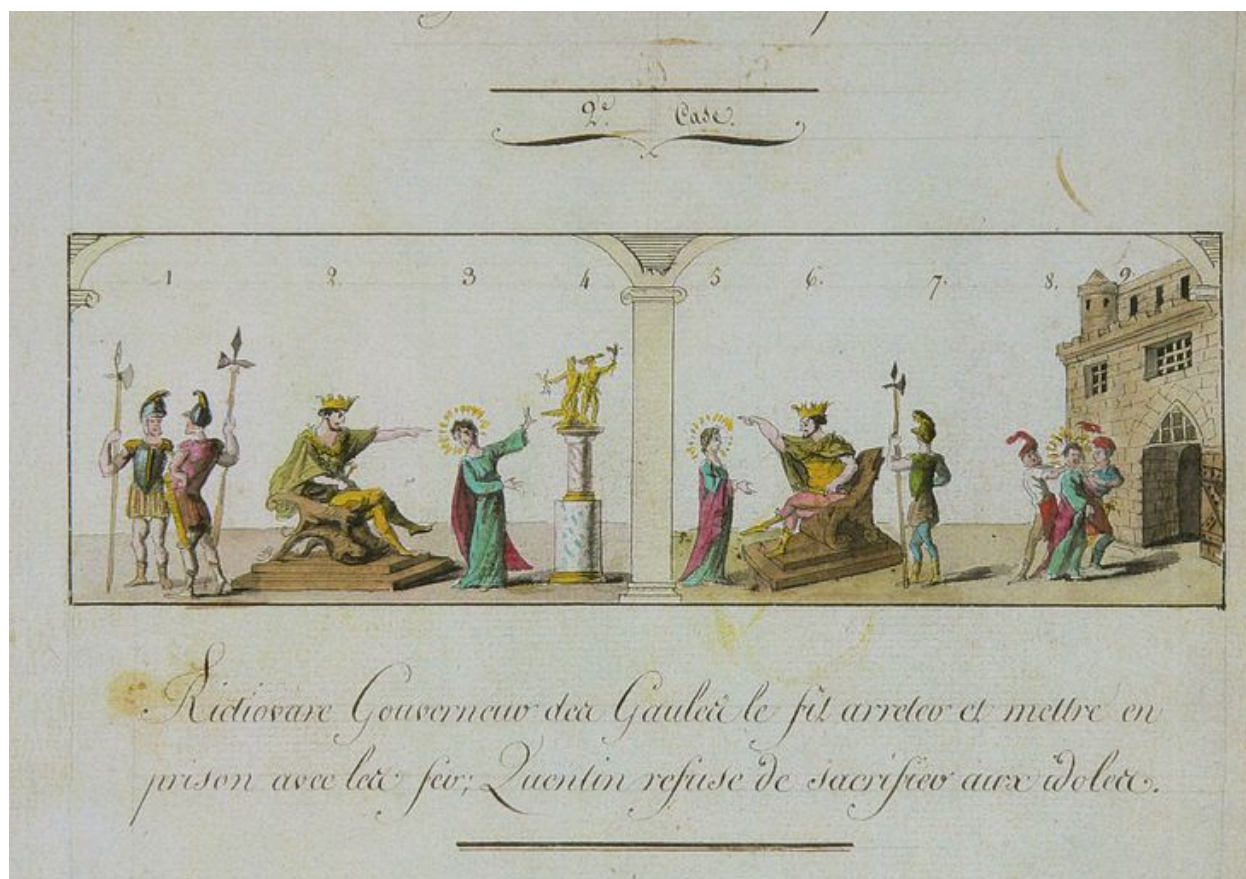 2e. Case.
1 2. 3 4 5 6. 7. 8. 9.
Ridiovare Gouverneur des Gaules le fit arreter et mettre en
prison avec les fer; Quentin refuse de sacrifier aux idoles.